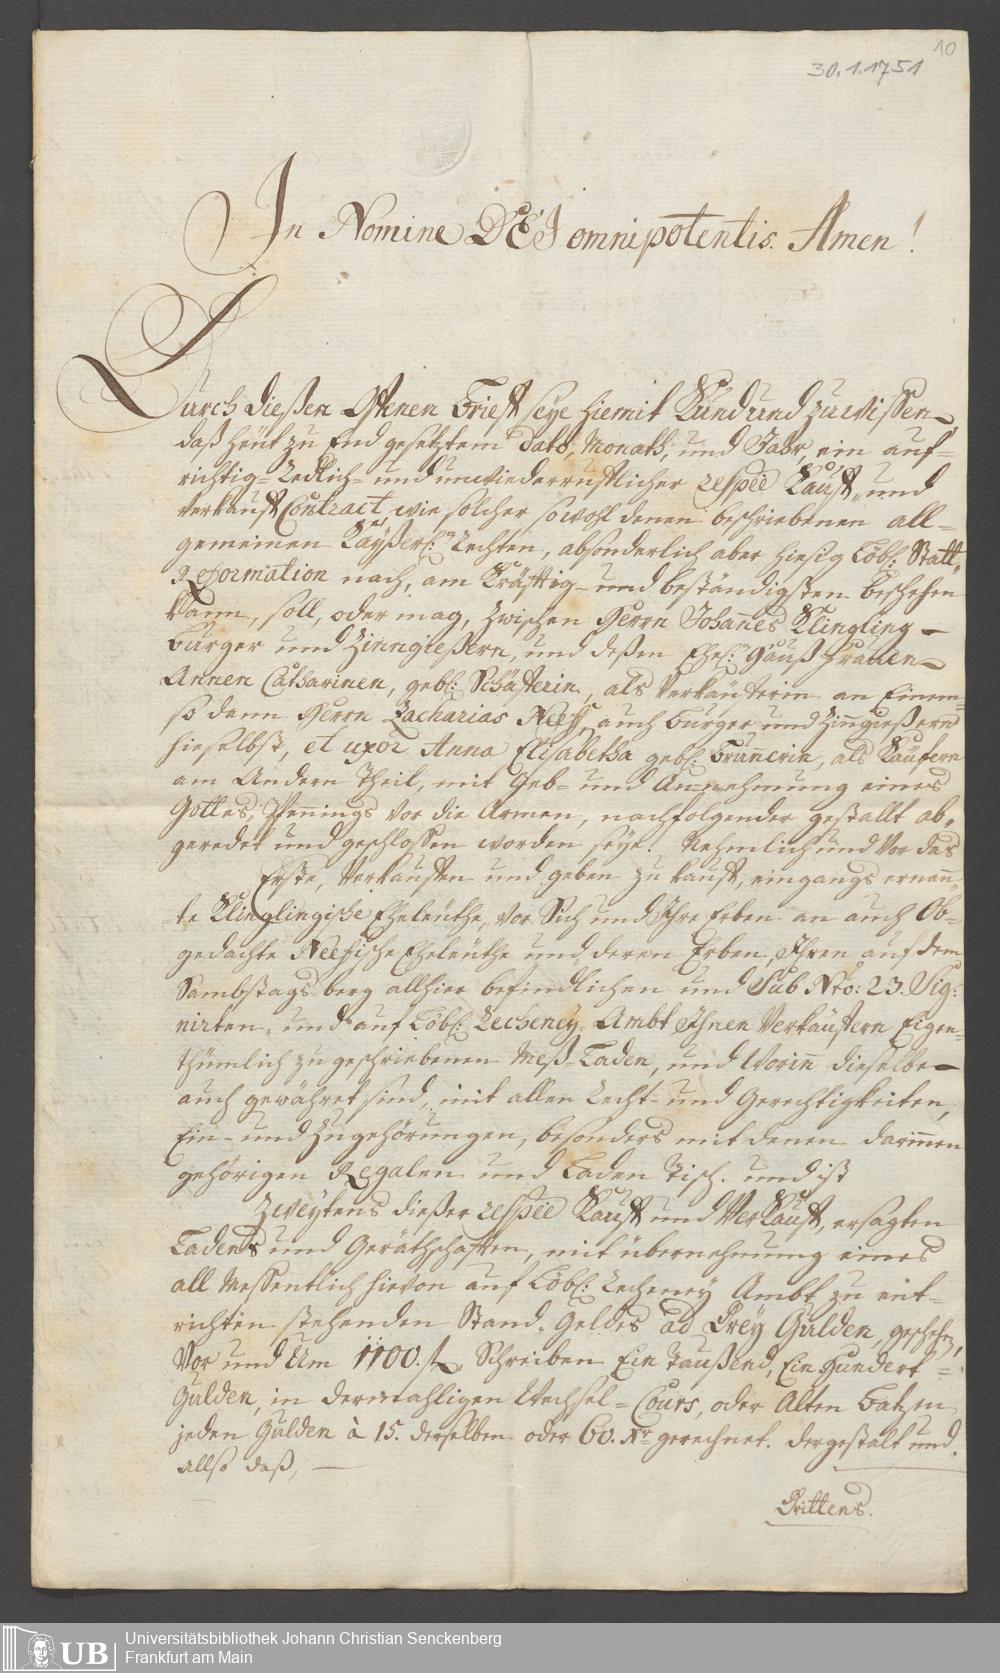 10
30.1.1751
In Nomine DEI omnipotentis. Amen!
Durch dießen Offenen Brieff seye hiemit Kund und zu wissen,
daß heut zu End gesetztem Dato, Monath, und Jahr, ein auf-
richtig- Redlich- und unwiederrufflicher respée Kauff- und
Verkauff Contract wie solcher sowohl denen beschriebenen all-
gemeinen Kayßerl: Rechten, absonderlich aber hiesig Löbl: Statt-
Reformation nach, am Kräfftig- und beständigsten beschehen
kann, soll, oder mag, zwischen Herrn Johannes Klingling
burger und Zinngießern, und deßen Ehel: Hauß Frauen
Annen Catharinen, gebl: Schäfferin, als Verkäuferin an Einem-
so dann Herrn Zacharias Neeff, auch burger und Zinngießern
hieselbst, et uxor Anna Elisabetha gebl: Brunnerin, als Käufern
am Andern Theil, mit Geb- und Annehmung eines
Gottes Pfennings vor die Armen, nachfolgender gestallt ab-
geredet und geschlossen worden seye. Nehmlich und Vor das
Erste, Verkauffen und geben zu kauff, eingangs ernann-
te Klinglingische Eheleuthe, vor Sich und Ihre Erben an auch Ob-
gedachte Neefische Eheleuthe und deren Erben, Ihren auf dem
Sambstags berg allhier befindlichen und Sub Nto: 23. Sig-
nirten, und auf Löbl: Recheney-Ambt Ihnen Verkäuffern Eigen-
thümlich zugeschriebenen Meß-Laden, und Worinn dieselbe
auch gewähret sind, mit allen Recht- und Gerechtigkeiten,
Ein- und Zugehörungen, besonders mit denen darinnen
gehörigen Regalen und Laden Tisch. und ist
Zweytens dießer respée Kauff und Verkauff, ersagten
Ladens und Geräthschafften, mit übernehmung eines
all Messentlich hievon auf Löbl: Recheney Ambt zu ent-
richten stehenden Stand-Geldes ad Drey Gulden, geschehen,
Vor und Um 1100. fl. Schreiben Ein Taußend, Ein Hundert
Gulden, in dermahligen Wechsel-Cours, oder Alten Batzen
jeden Gulden à 15. derselben oder 60. Xr gerechnet. dergestalt und
allso daß,
Drittens.
UB
Universitätsbibliothek Johann Christian Senckenberg
Frankfurt am Main